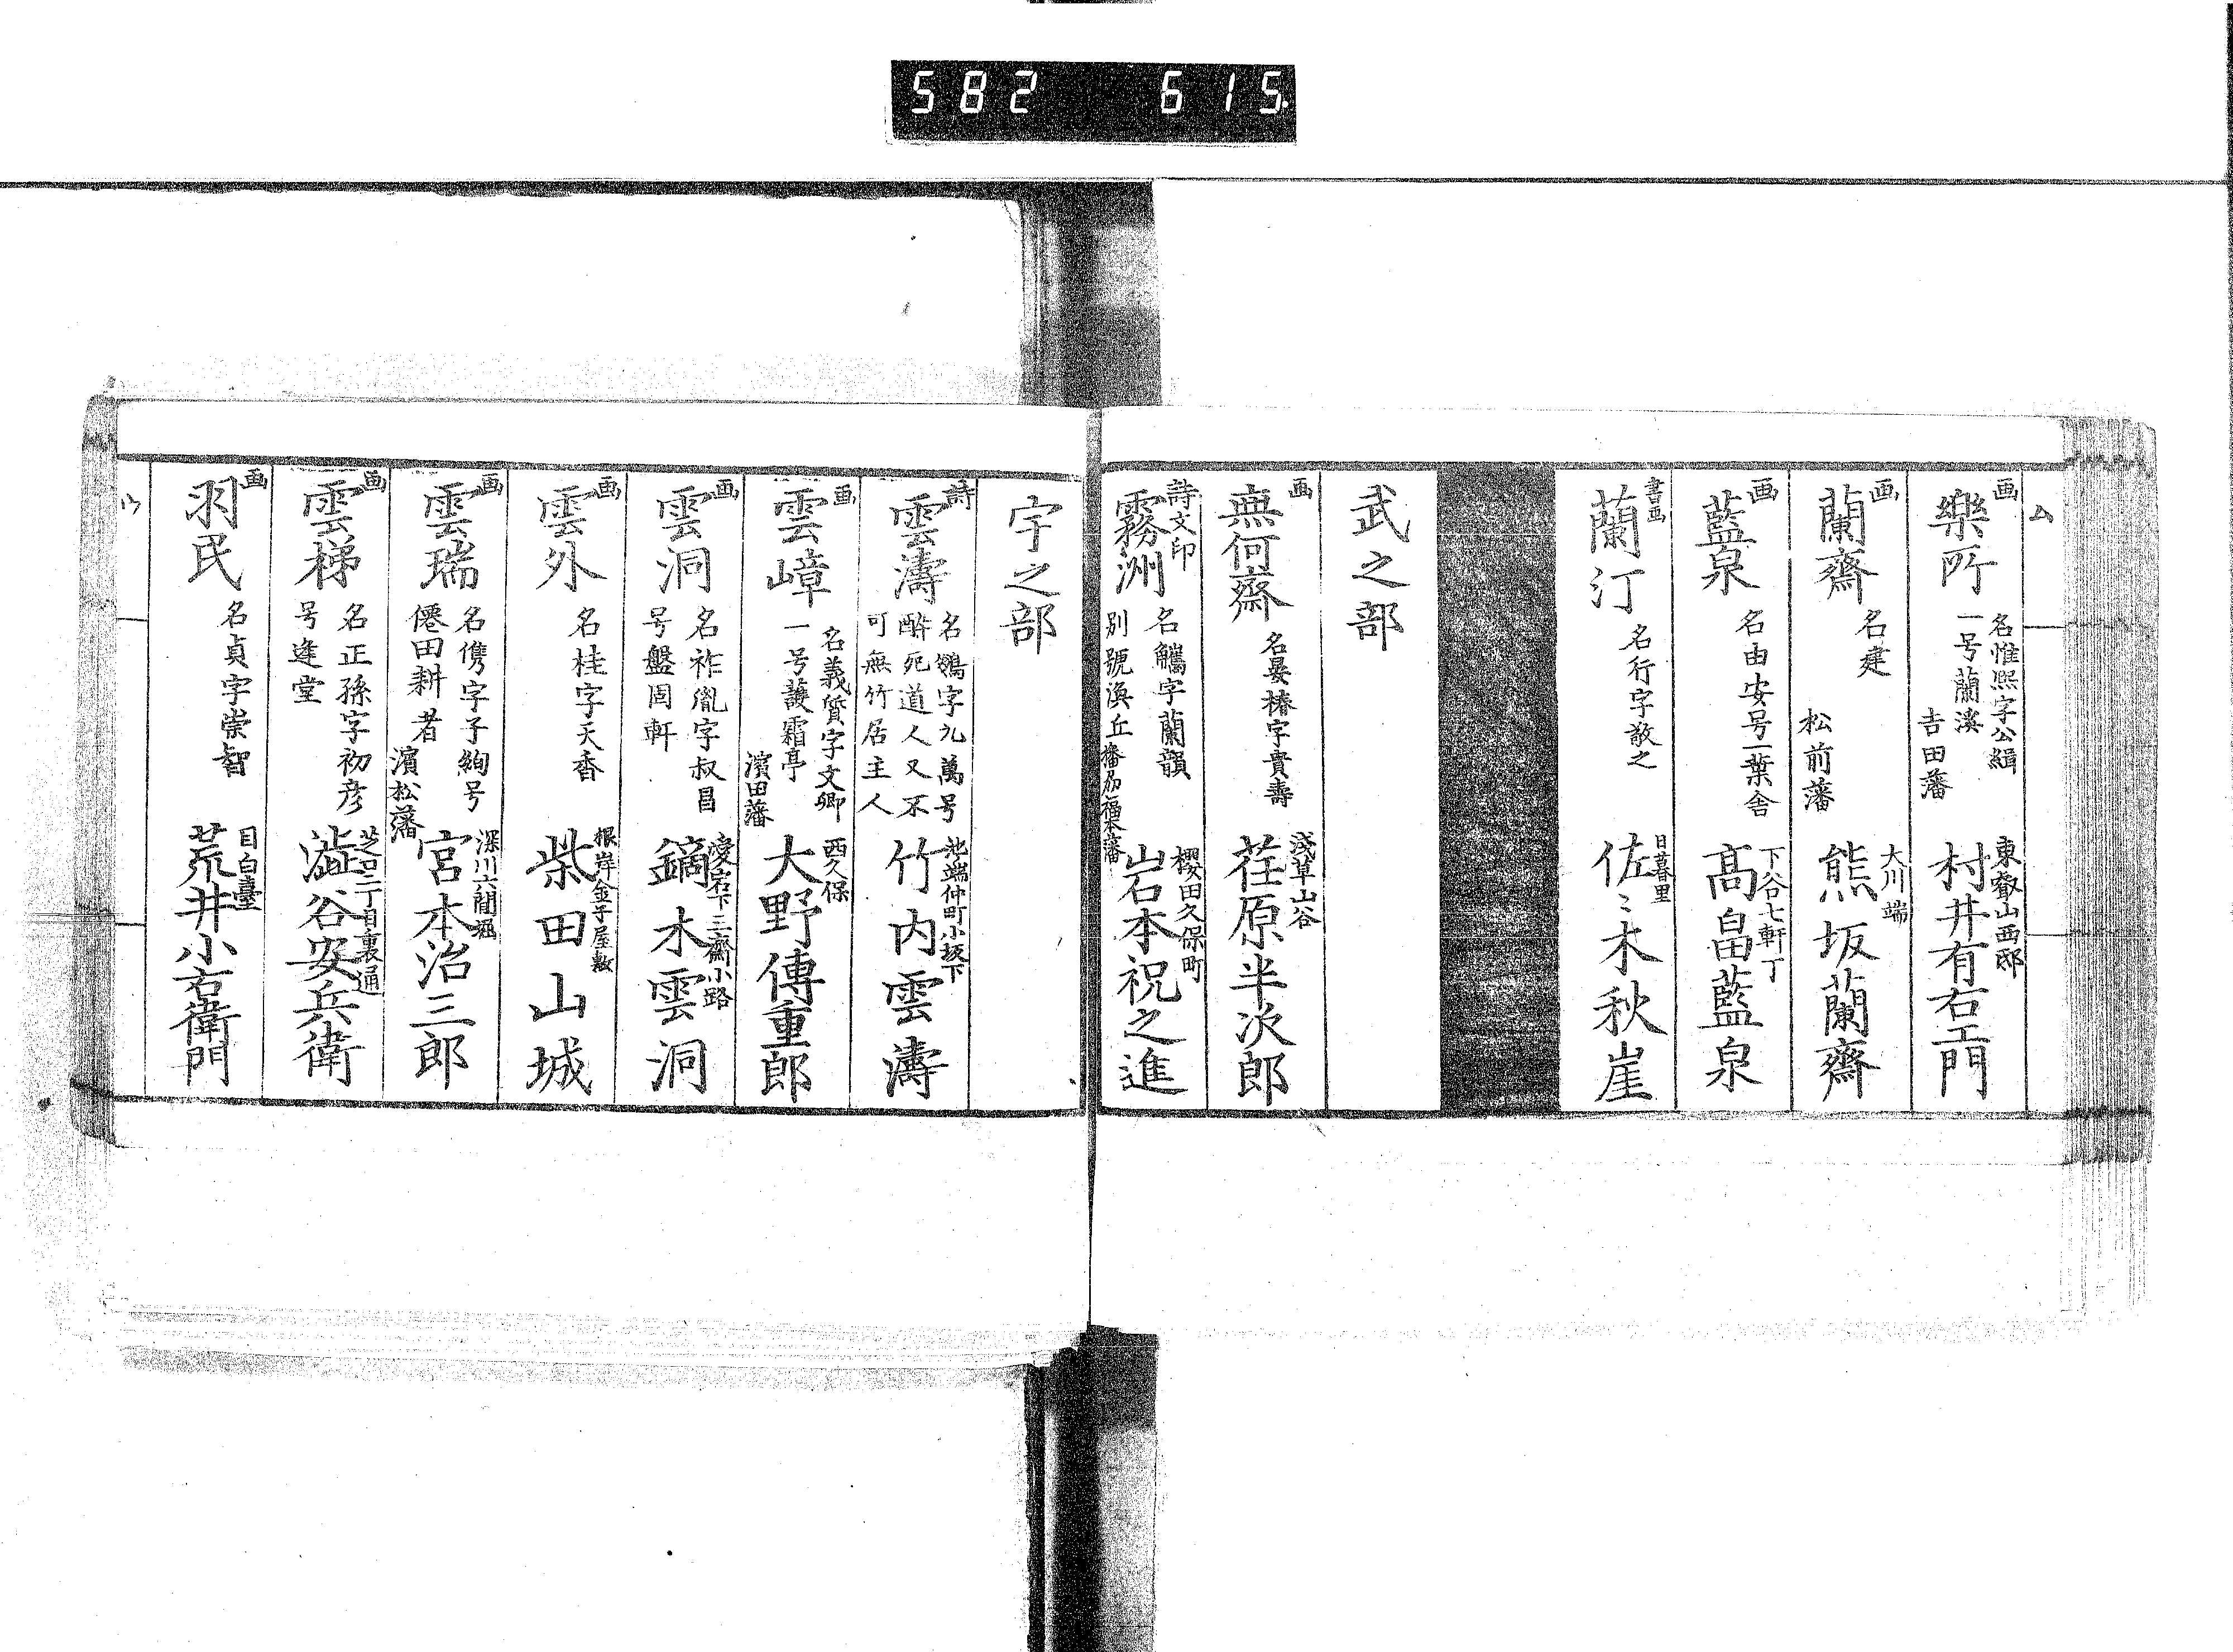 582 615.
画
樂所
名惟熙字公緝
一号蘭溪
吉田藩
東叡山西邸
村井有右エ門
画
蘭齋
名建
松前藩
大川端
熊坂蘭齋
画
藍泉
名由安号一葉舎
下谷七軒丁
髙畠藍泉
書画
蘭汀
名行字敬之
日暮里
佐〻木秋崖
武之部
画
無何齋
名晏椿字貴壽
淺草山谷
荏原半次郎
詩文印
霧洲
名觿字蘭韻
別號渙丘
播州福本藩
櫻田久保町
岩本祝之進
宇之部
詩
雲濤
名鵕字九萬号
醉死道人又不
可無竹居主人
池端仲町小坂下
竹内雲濤
画
雲嶂
名義質字文卿
一号護霜亭
濱田藩
西久保
大野傳重郎
画
雲洞
名祚胤字叔昌
号盤固軒
愛宕下三齋小路
鏑木雲洞
画
雲外
名桂字天香
根岸金子屋敷
柴田山城
画
雲瑞
名儁字子絢号
僊田耕者
濱松藩
深川六間堀
宮本治三郎
画
雲梯
名正孫字初彦
号逢堂
芝口二丁目裏通
澁谷安兵衛
画
羽民
名貞字崇智
目白臺
荒井小右衛門